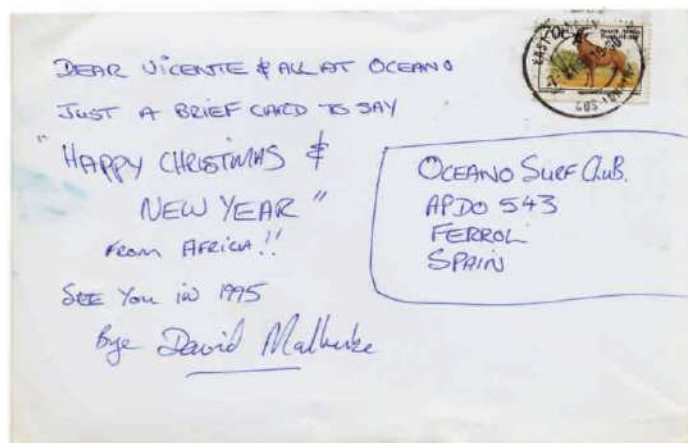 DEAR VICENTE & ALL AT OCEANO
JUST A BRIEF CARD TO SAY
"HAPPY CHRISTMAS &
NEW YEAR"
FROM AFRICA!!
SEE YOU IN 1995
Bye David Malherbe
OCEANO SURF CLUB.
APDO 543
FERROL
SPAIN
70c